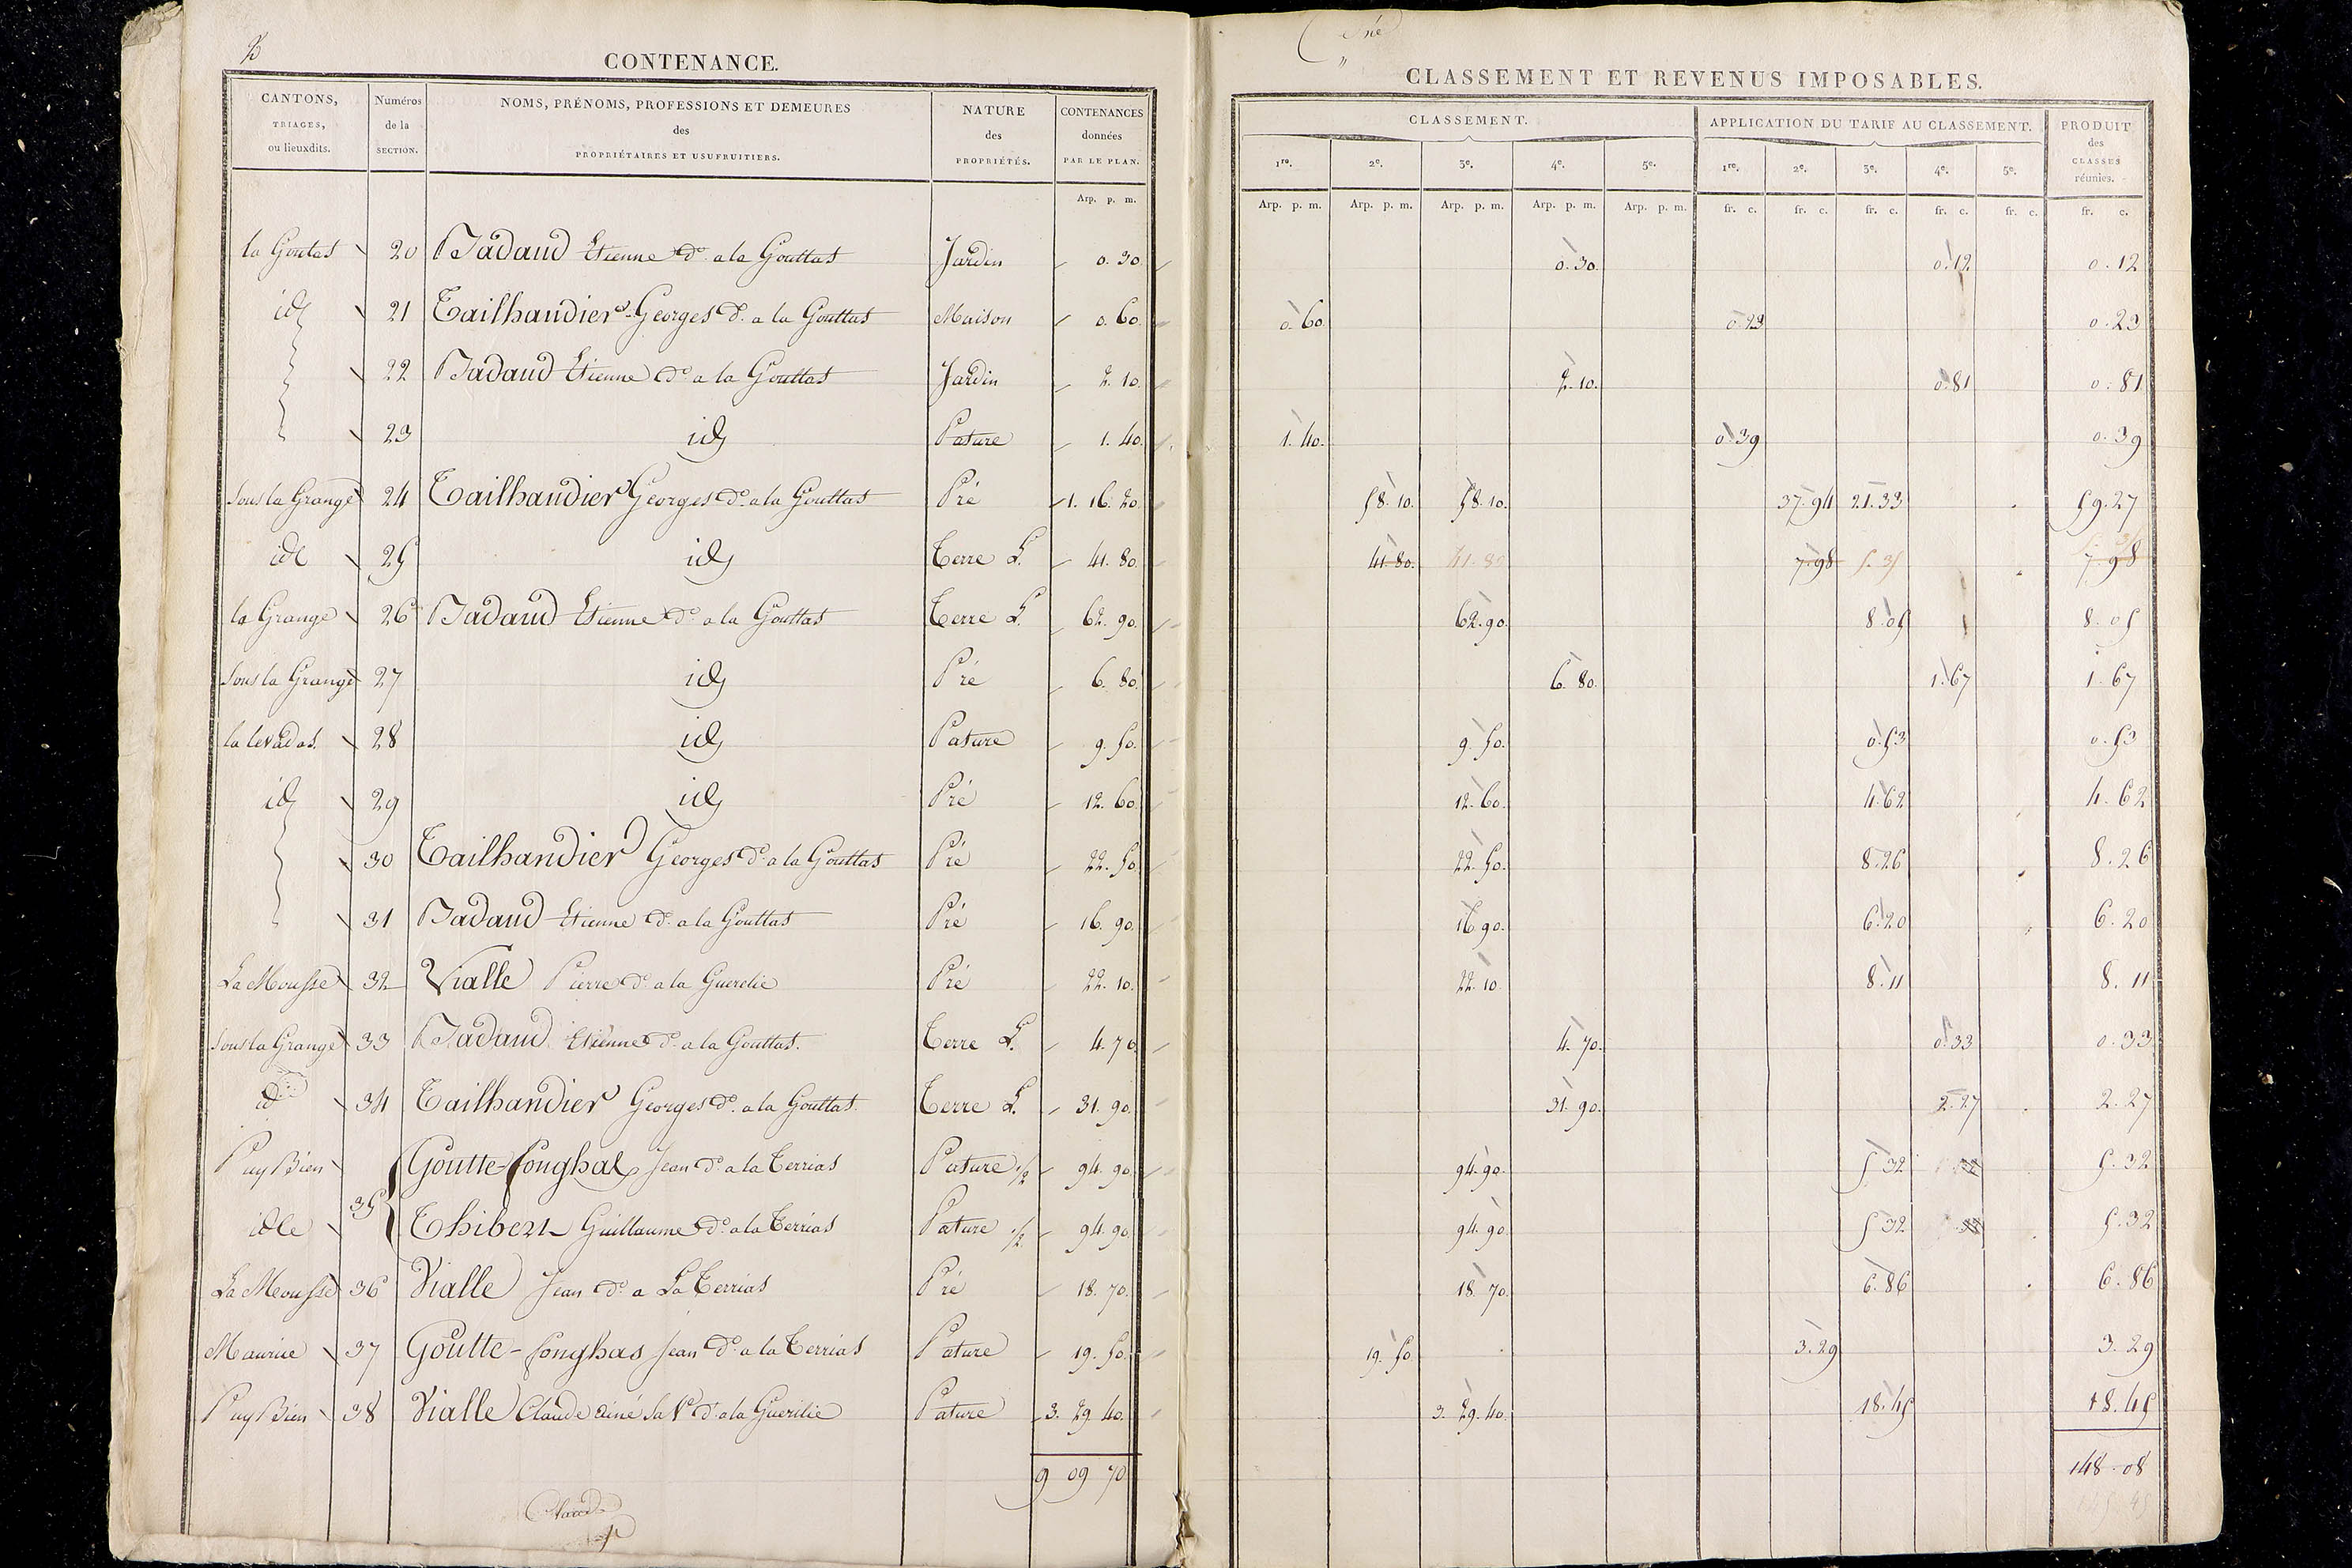 2
CONTENANCE.
CANTONS, TRIAGES, ou lieuxdits. Numéros de la SECTION. NOMS, PRÉNOMS, PROFESSIONS ET DEMEURES des PROPRIÉTAIRES ET USUFRUITIERS. NATURE des PROPRIÉTÉS. CONTENANCES données PAR LE PLAN.
Arp. p. m.
CLASSEMENT ET REVENUS IMPOSABLES.
CLASSEMENT. APPLICATION DU TARIF AU CLASSEMENT. PRODUIT des CLASSES réunies.
1re. 2e. 3e. 4e. 5e. 1re. 2e. 3e. 4e. 5e.
Arp. p. m. Arp. p. m. Arp. p. m. Arp. p. m. Arp. p. m. fr. c. fr. c. fr. c. fr. c. fr. c. fr. c.
la Goutas 20 Badaud Etienne do. a la Gouttas Jardin 0. 30. 0. 30. 0. 12 0. 12
id 21 Tailhandier Georges do. a la Gouttas Maison 0. 60. 0. 60 0. 23 0. 23
22 Badaud Etienne do. a la Gouttas Jardin 2. 10. 2. 10. 0. 81 0. 81
23 id Pature 1. 40. 1. 40. 0. 39 0. 39
Sous la Grange 24 Tailhandier Georges do. a la Gouttas Pré 1. 16. 20 58. 10. 58. 10. 37. 94 21. 33 59. 27
idE 25 id Terre L. 41. 80. 41. 80. 41. 80 7. 98 5. 31 7. 98
la Grange 26 Badaud Etienne do. a la Gouttas Terre L. 62. 90. 62. 90. 8. 05 8. 05
Sous la Grange 27 id Pré 6. 80. 6. 80. 1. 67 1. 67
la levadas. 28 id Pature 9. 50. 9. 50. 0. 53 0. 53
id 29 id Pré 12. 60. 12. 60. 4. 62 4. 62
30 Tailhandier Georges do. a la Gouttas Pré 22. 50. 22. 50. 8. 26 8. 26
31 Badaud Etienne do. a la Gouttas Pré 16. 90. 16. 90. 6. 20 6. 20
La Mousse 32 Vialle Pierre do. a la Guerelie Pré 22. 10. 22. 10. 8. 11 8. 11
Sous la Grange 33 Badaud Etienne do. a la Gouttas. Terre L. 4. 70. 4. 70. 0. 33 0. 33
id 34 Tailhandier Georges do. a la Gouttas. Terre L. 31. 90. 31. 90. 2. 27 2. 27
Puy Bien 35 Goutte-fonghas Jean do. a la Terrias Pature 1/2 94. 90. 94. 90. 5. 32 5. 32
idle Thibert Guillaume do. a la Terrias Pature 1/2 94. 90. 94. 90. 5. 32 5. 32
La Mousse 36 Vialle Jean do. a La Terrias Pré 18. 70. 18. 70. 6. 86 6. 86
Maurice 37 Goutte-fonghas Jean do. a la Terrias Pature 19. 50. 19. 50 3. 29 3. 29
Puy Bien 38 Vialle Claude ainé Sa Ve do. a la Guerilie Pature 3. 29. 40. 3. 29. 40. 18. 45 18. 45
9 09 70 148. 08